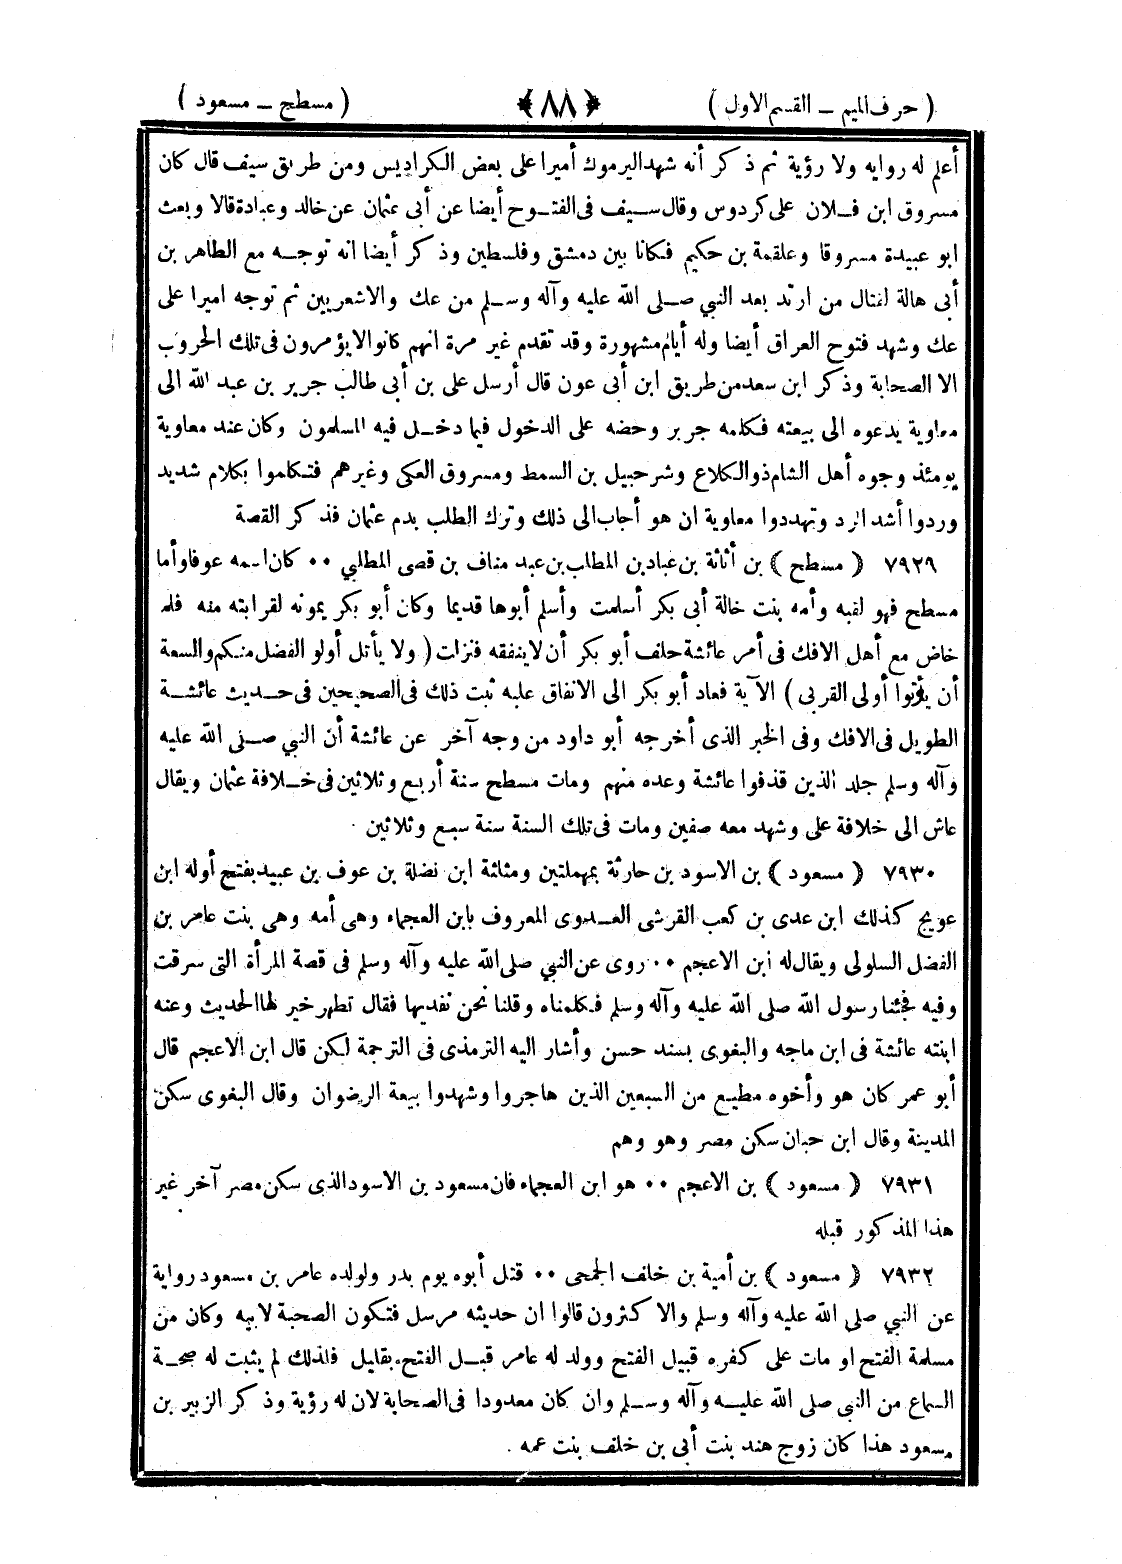 ( حرف الميم – القسم الاول ) ﴿ ٨٨ ﴾ ( مسطح – مسعود )
أعلم له روايه ولا رؤية ثم ذكر أنه شهد اليرموك أميرا على بعض الكراديس ومن طريق سيف قال كان
مسروق ابن فلان على كردوس وقال سيف فى الفتوح أيضا عن أبى عثمان عن خالد وعبادة قالا وبعث
ابو عبيدة مسروقا وعلقمة بن حكيم فكانا بين دمشق وفلسطين وذكر أيضا انه توجه مع الطاهر بن
أبى هالة لقتال من ارتد بعد النبي صلى الله عليه وآله وسلم من عك والاشعريين ثم توجه اميرا على
عك وشهد فتوح العراق أيضا وله أيام مشهورة وقد تقدم غير مرة انهم كانوا لايؤمرون فى تلك الحروب
الا الصحابة وذكر ابن سعد من طريق ابن أبى عون قال أرسل على بن أبى طالب جرير بن عبد الله الى
معاوية يدعوه الى بيعته فكلمه جرير وحضه على الدخول فيما دخل فيه المسلمون وكان عند معاوية
يومئذ وجوه أهل الشام ذو الكلاع وشرحبيل بن السمط ومسروق العكى وغيرهم فتكلموا بكلام شديد
وردوا أشد الرد وتهددوا معاوية ان هو أجاب الى ذلك وترك الطلب بدم عثمان فذكر القصة
٧٩٢٩ ( مسطح ) بن أثاثة بن عباد بن المطلب بن عبد مناف بن قصى المطلبي ٠٠ كان اسمه عوفا وأما
مسطح فهو لقبه وأمه بنت خالة أبى بكر أسلمت وأسلم أبوها قديما وكان أبو بكر يمونه لقرابته منه فلما
خاض مع أهل الافك فى أمر عائشة حلف أبو بكر أن لا ينفقه فنزلت ( ولا يأتل أولو الفضل منكم والسعة
أن يؤتوا أولى القربى ) الآية فعاد أبو بكر الى الانفاق عليه ثبت ذلك فى الصحيحين فى حديث عائشة
الطويل فى الافك وفى الخبر الذى أخرجه أبو داود من وجه آخر عن عائشة أن النبي صلى الله عليه
وآله وسلم جلد الذين قذفوا عائشة وعده منهم ومات مسطح سنة أربع وثلاثين فى خلافة عثمان ويقال
عاش الى خلافة على وشهد معه صفين ومات فى تلك السنة سنة سبع وثلاثين
٧٩٣٠ ( مسعود ) بن الاسود بن حارثة بمهملتين ومثلثة ابن نضلة بن عوف بن عبيد بفتح أوله ابن
عويج كذلك ابن عدى بن كعب القرشى العدوى المعروف بابن العجماء وهى أمه وهى بنت عامر بن
الفضل السلولى ويقال له ابن الاعجم ٠٠ روى عن النبي صلى الله عليه وآله وسلم فى قصة المرأة التى سرقت
وفيه فجئنا رسول الله صلى الله عليه وآله وسلم فكلمناه وقلنا نحن نفديها فقال تطهر خير لها الحديث وعنه
ابنته عائشة فى ابن ماجه والبغوى بسند حسن وأشار اليه الترمذى فى الترجمة لكن قال ابن الاعجم قال
أبو عمر كان هو وأخوه مطيع من السبعين الذين هاجروا وشهدوا بيعة الرضوان وقال البغوى سكن
المدينة وقال ابن حبان سكن مصر وهو وهم
٧٩٣١ ( مسعود ) بن الاعجم ٠٠ هو ابن العجماء فان مسعود بن الاسود الذى سكن مصر آخر غير
هذا المذكور قبله
٧٩٣٢ ( مسعود ) بن أمية بن خلف الجمحى ٠٠ قتل أبوه يوم بدر ولولده عامر بن مسعود رواية
عن النبي صلى الله عليه وآله وسلم والاكثرون قالوا ان حديثه مرسل فتكون الصحبة لابيه وكان من
مسلمة الفتح او مات على كفره قبيل الفتح وولد له عامر قبل الفتح بقليل فلذلك لم يثبت له صحة
السماع من النبى صلى الله عليه وآله وسلم وان كان معدودا فى الصحابة لان له رؤية وذكر الزبير بن
مسعود هذا كان زوج هند بنت أبى بن خلف بنت عمه .